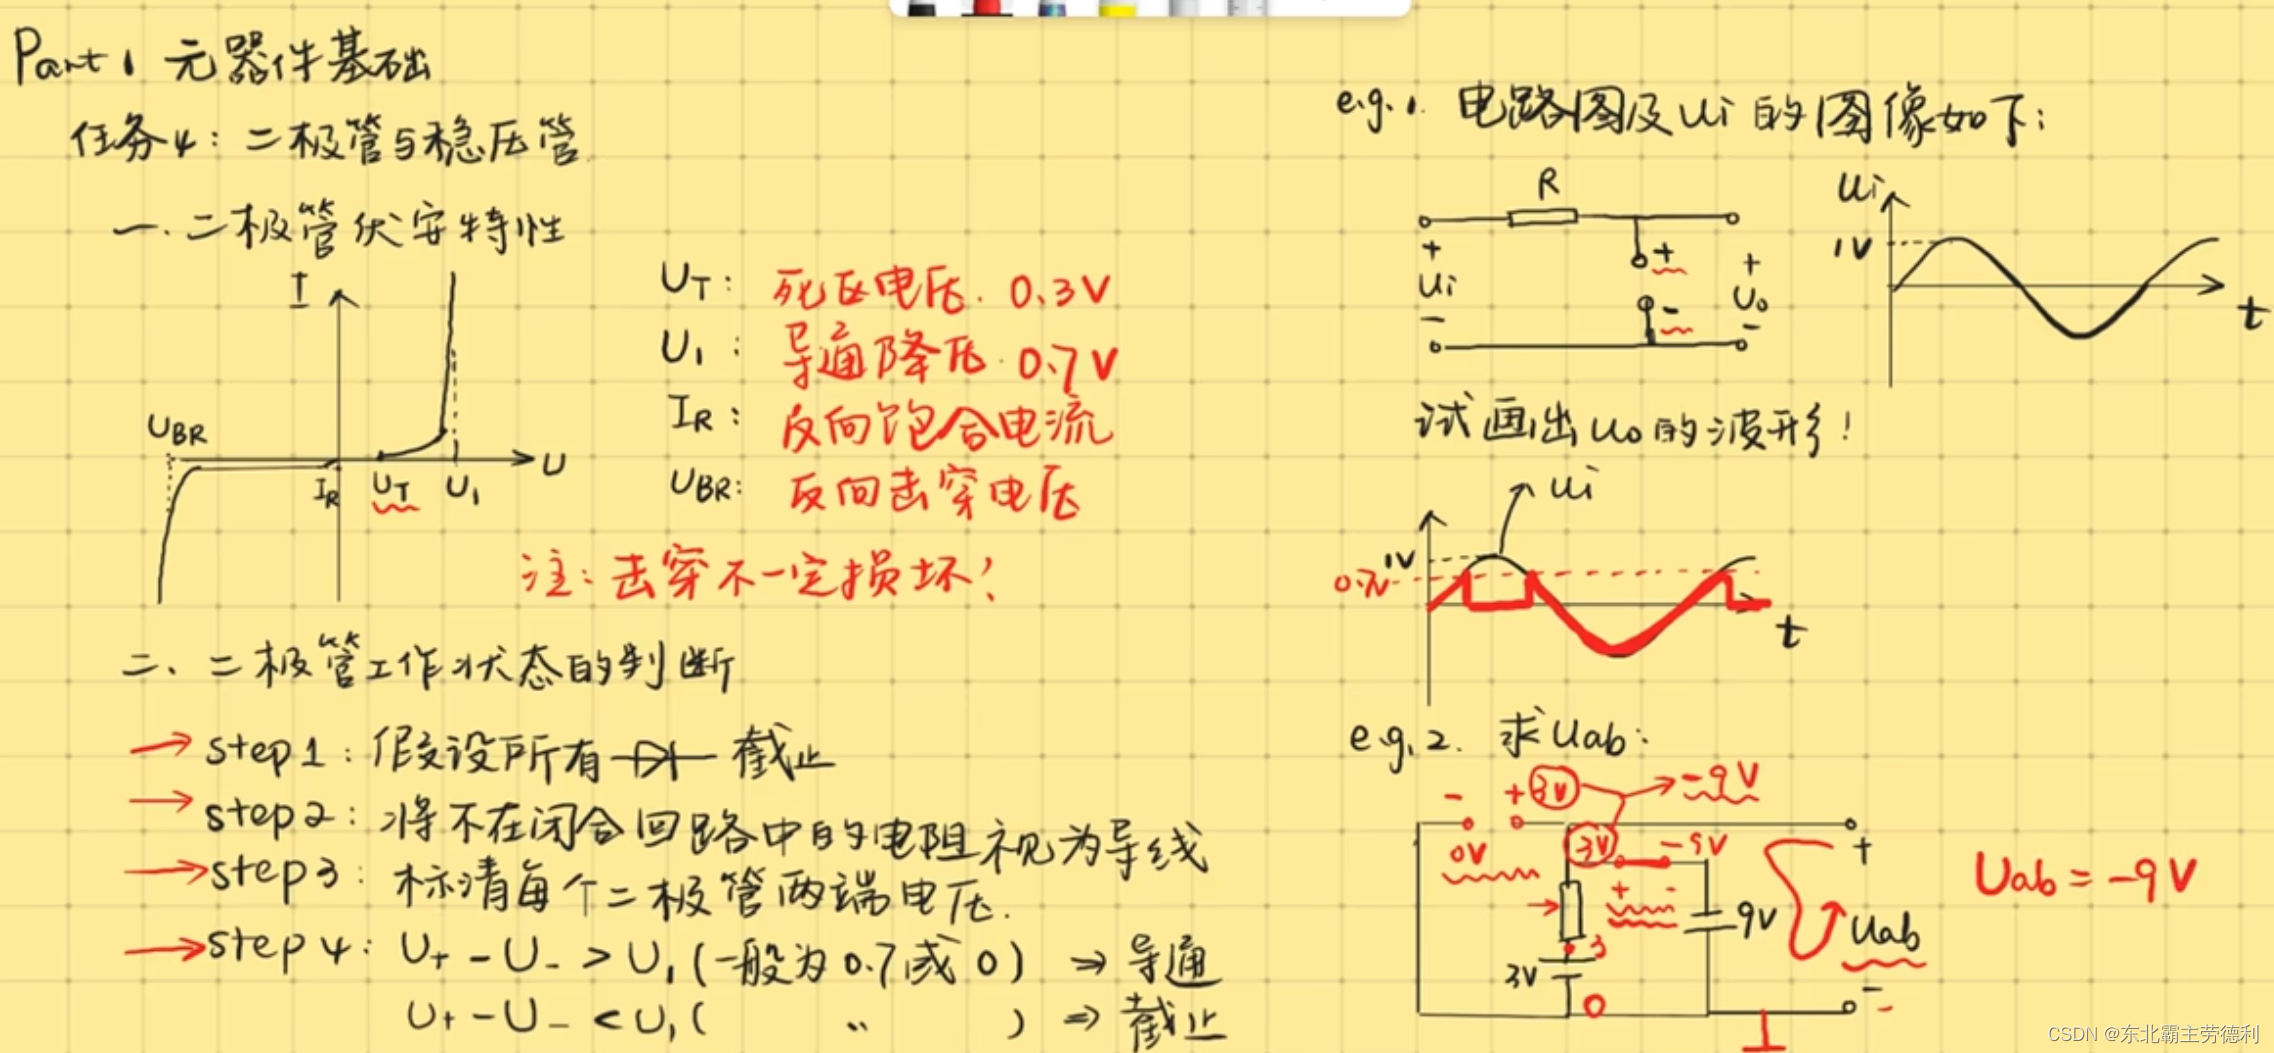 Part 1 元器件基础
任务4：二极管与稳压管
一、二极管伏安特性
I
U_BR
I_R
U_T
U_1
U
U_T：死区电压. 0.3V
U_1：导通降压. 0.7V
I_R：反向饱合电流
U_BR：反向击穿电压
注：击穿不一定损坏！
二、二极管工作状态的判断
→ step1：假设所有 截止
→ step2：将不在闭合回路中的电阻视为导线
→ step3：标清每个二极管两端电压.
→ step4：U+ - U- > U_1 (一般为0.7或0) ⇒ 导通
U+ - U- < U_1 ( 〃 ) ⇒ 截止
e.g.1. 电路图及ui的图像如下：
R
+
Ui
-
+
-
+
Uo
-
Ui
1V
t
试画出uo的波形！
ui
1V
0.7V
t
e.g.2. 求Uab：
- + 3V → -9V
0V
3V
-9V
+ -
+
9V
3
3V
0
Uab
-
-
Uab = -9V
CSDN @东北霸主劳德利